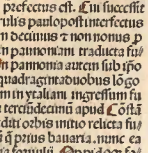 prefectus est. Cui successit
rulus paulopost interfectus
n decimus et non nonus p
in pannoniam traducta fu
n pannonia autem sub ip̄o
quadragintaduobus lōgo
m in ytaliam ingressum fu
tercīdecimū apud Cōstā
diti orbis initio relicta fu
q̄ prius bauaria. nunc ea